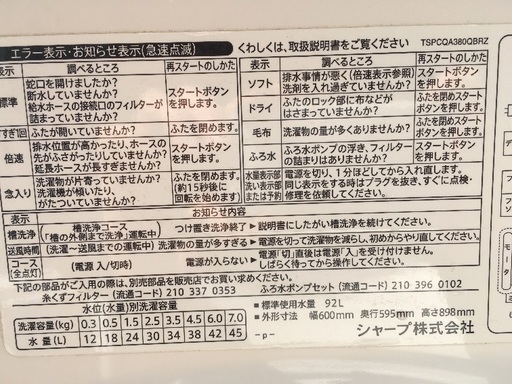 エラー表示・お知らせ表示(急速点滅)
くわしくは、取扱説明書をご覧ください TSPCQA380QBRZ
表示 調べるところ 再スタートのしかた
標準 蛇口を開けましたか?
断水していませんか?
給水ホースの接続口のフィルターが
詰まっていませんか?
スタートボタン
を押します。
すすぎ1回 ふたが開いていませんか? ふたを閉めます。
倍速 排水位置が高かったり、ホースの
先がふさがったりしていませんか?
延長ホースが長すぎませんか?
スタートボタン
を押します。
念入り 洗濯物が片寄っていませんか?
洗濯機が傾いたり、
がたついていませんか?
ふたを閉めます。
(約15秒後に
回転を始めます)
表示 調べるところ 再スタートのしかた
ソフト 排水事情が悪く(倍速表示参照)
洗剤を入れ過ぎていませんか?
スタートボタン
を押します。
ドライ ふたのロック部に布などが
はさまっていませんか?
ふたを閉めスタート
ボタンを押します。
毛布 洗濯物の量が多くありませんか?
ふたを閉めます。
ふろ水 ふろ水ポンプの浮き、フィルター
の詰まりはありませんか?
スタートボタン
を押します。
水量表示
洗い表示
または予約
電源を切り、1分ほどしてから入れ直します。
同じ表示をする時はプラグを抜き、すぐに点検・
修理を依頼してください。
表示 お知らせ内容
槽洗浄 槽洗浄コース
(「槽の外側まで洗浄」運転中) つけ置き洗浄終了 ➡ 説明書にしたがい槽洗浄を続けてください。
送風時間 (洗濯〜送風までの運転中) 洗濯物の量が多すぎる ➡ 電源を切って洗濯物を減らし、初めからやり直してください。
コース
(全点灯) (電源 入/切時) 電源が入らない ➡ 電源「切」直後は電源「入」を受け付けません。
しばらく待ってから操作してください。
下記の部品がご入用の際は、別売部品を販売店でお買い求めください。
糸くずフィルター(流通コード)210 337 0353 ふろ水ポンプセット(流通コード)210 396 0102
水位(水量)別洗濯容量
洗濯容量(kg) 0.3 0.5 1.5 2.5 4.5 6.0 7.0
水 量(L) 12 18 24 30 34 38 42 45
■ 標準使用水量 92L
■ 外形寸法 幅600mm 奥行595mm 高さ898mm
－p－ シャープ株式会社
モータ